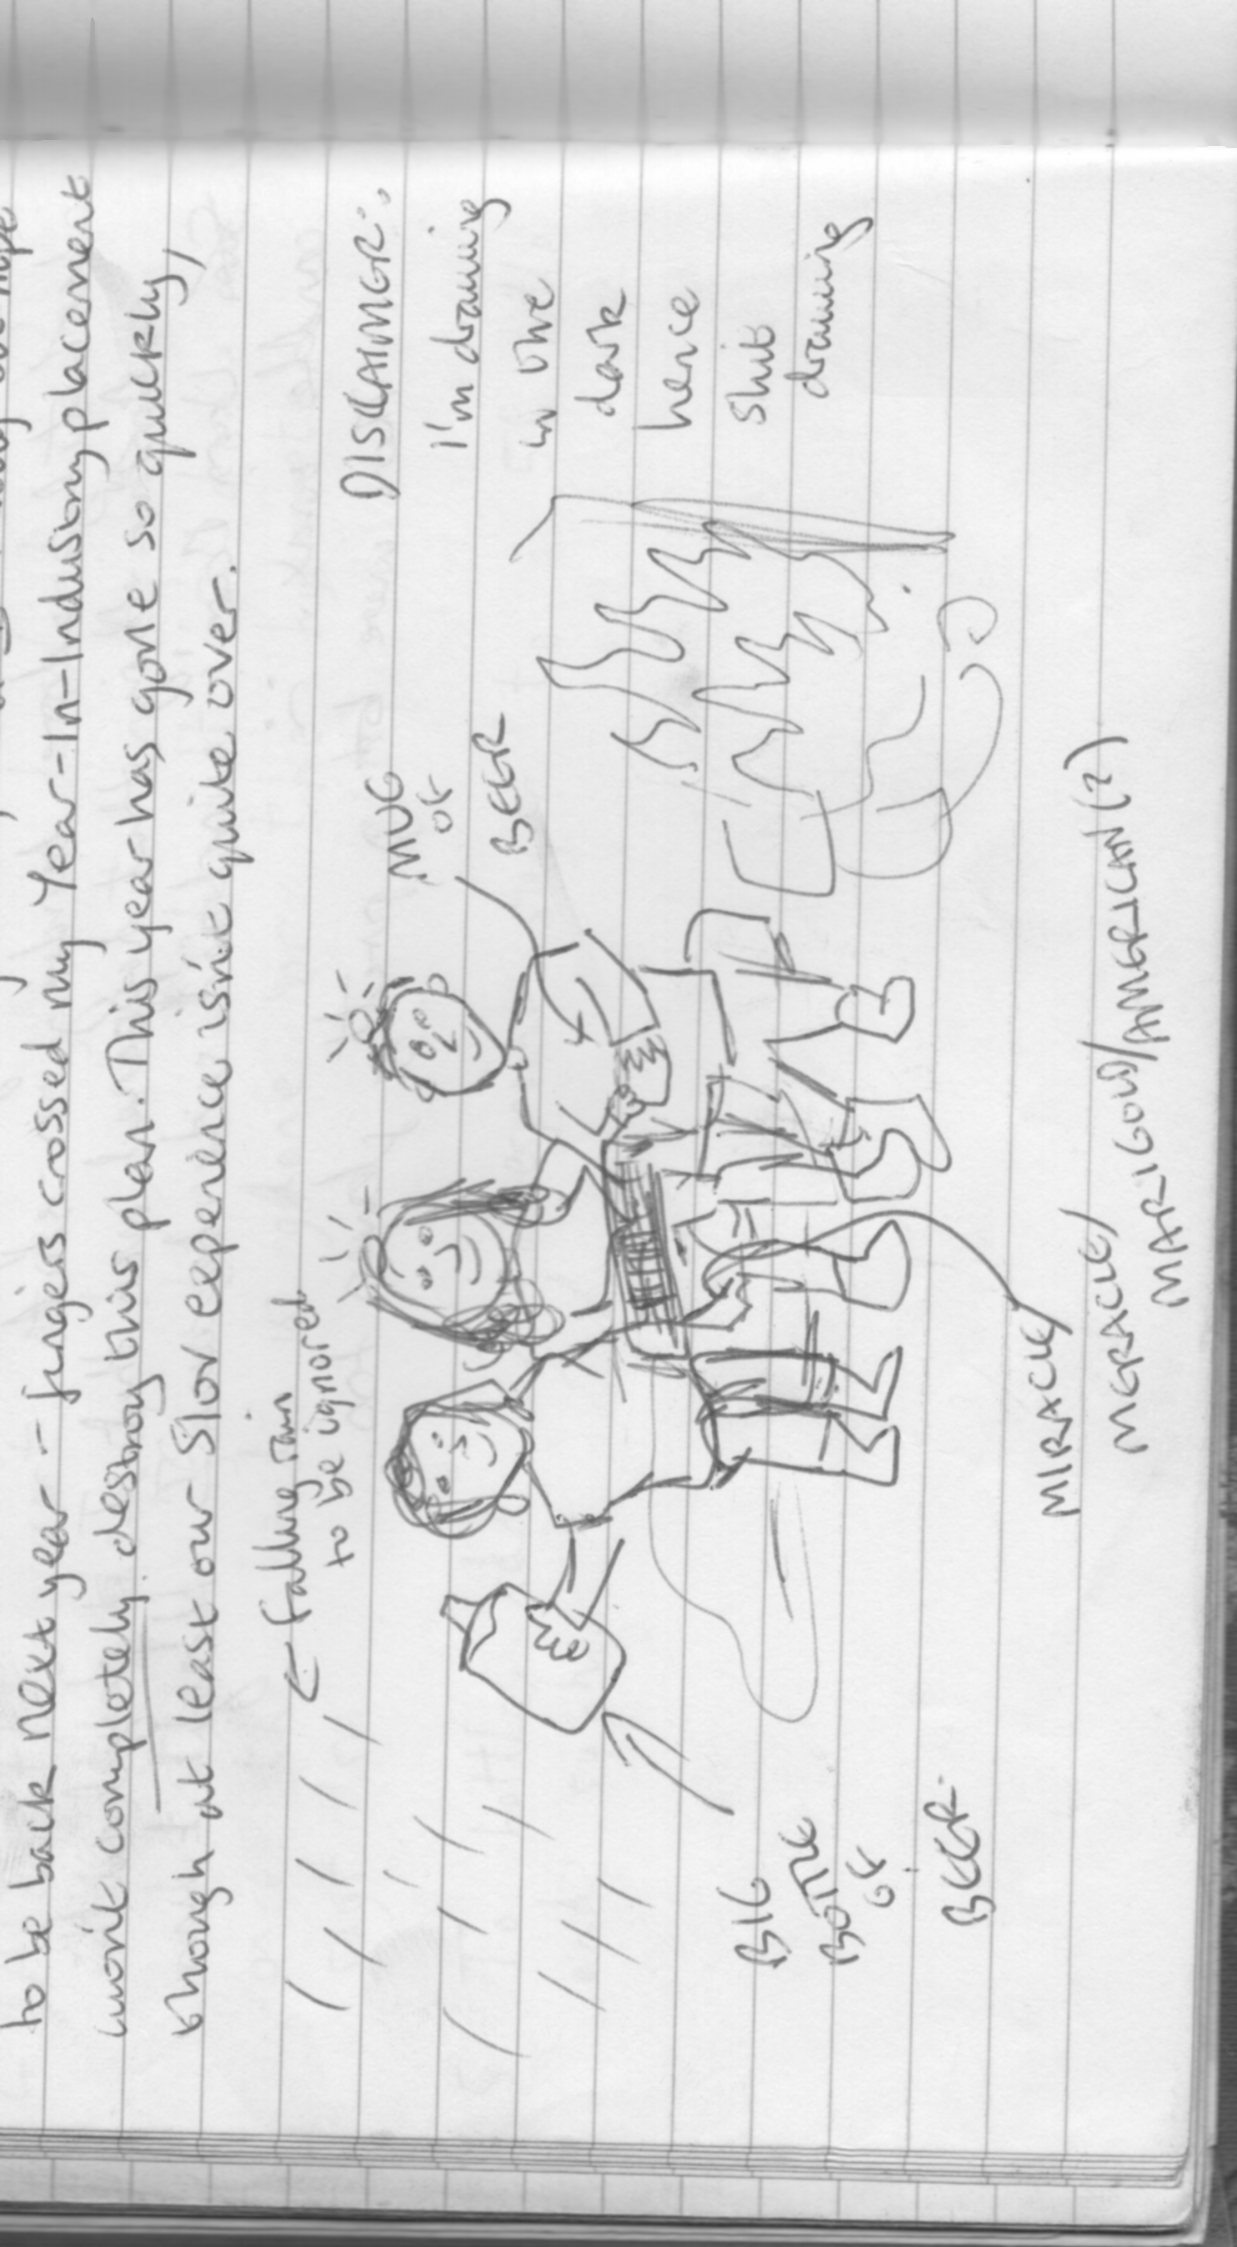 to be back next year – fingers crossed my Year-In-Industry placement
won't completely destroy this plan. This year has gone so quickly,
though at least our Slov experience isn't quite over.
← falling rain
to be ignored
DISCLAIMER:
I'm drawing
in the
dark
hence
shit
drawing
MUG
OF
BEER
BIG
BOTTLE
OF
BEER
MIRACLE/
MERACLE/
MARIGOLD/AMERICAN(?)